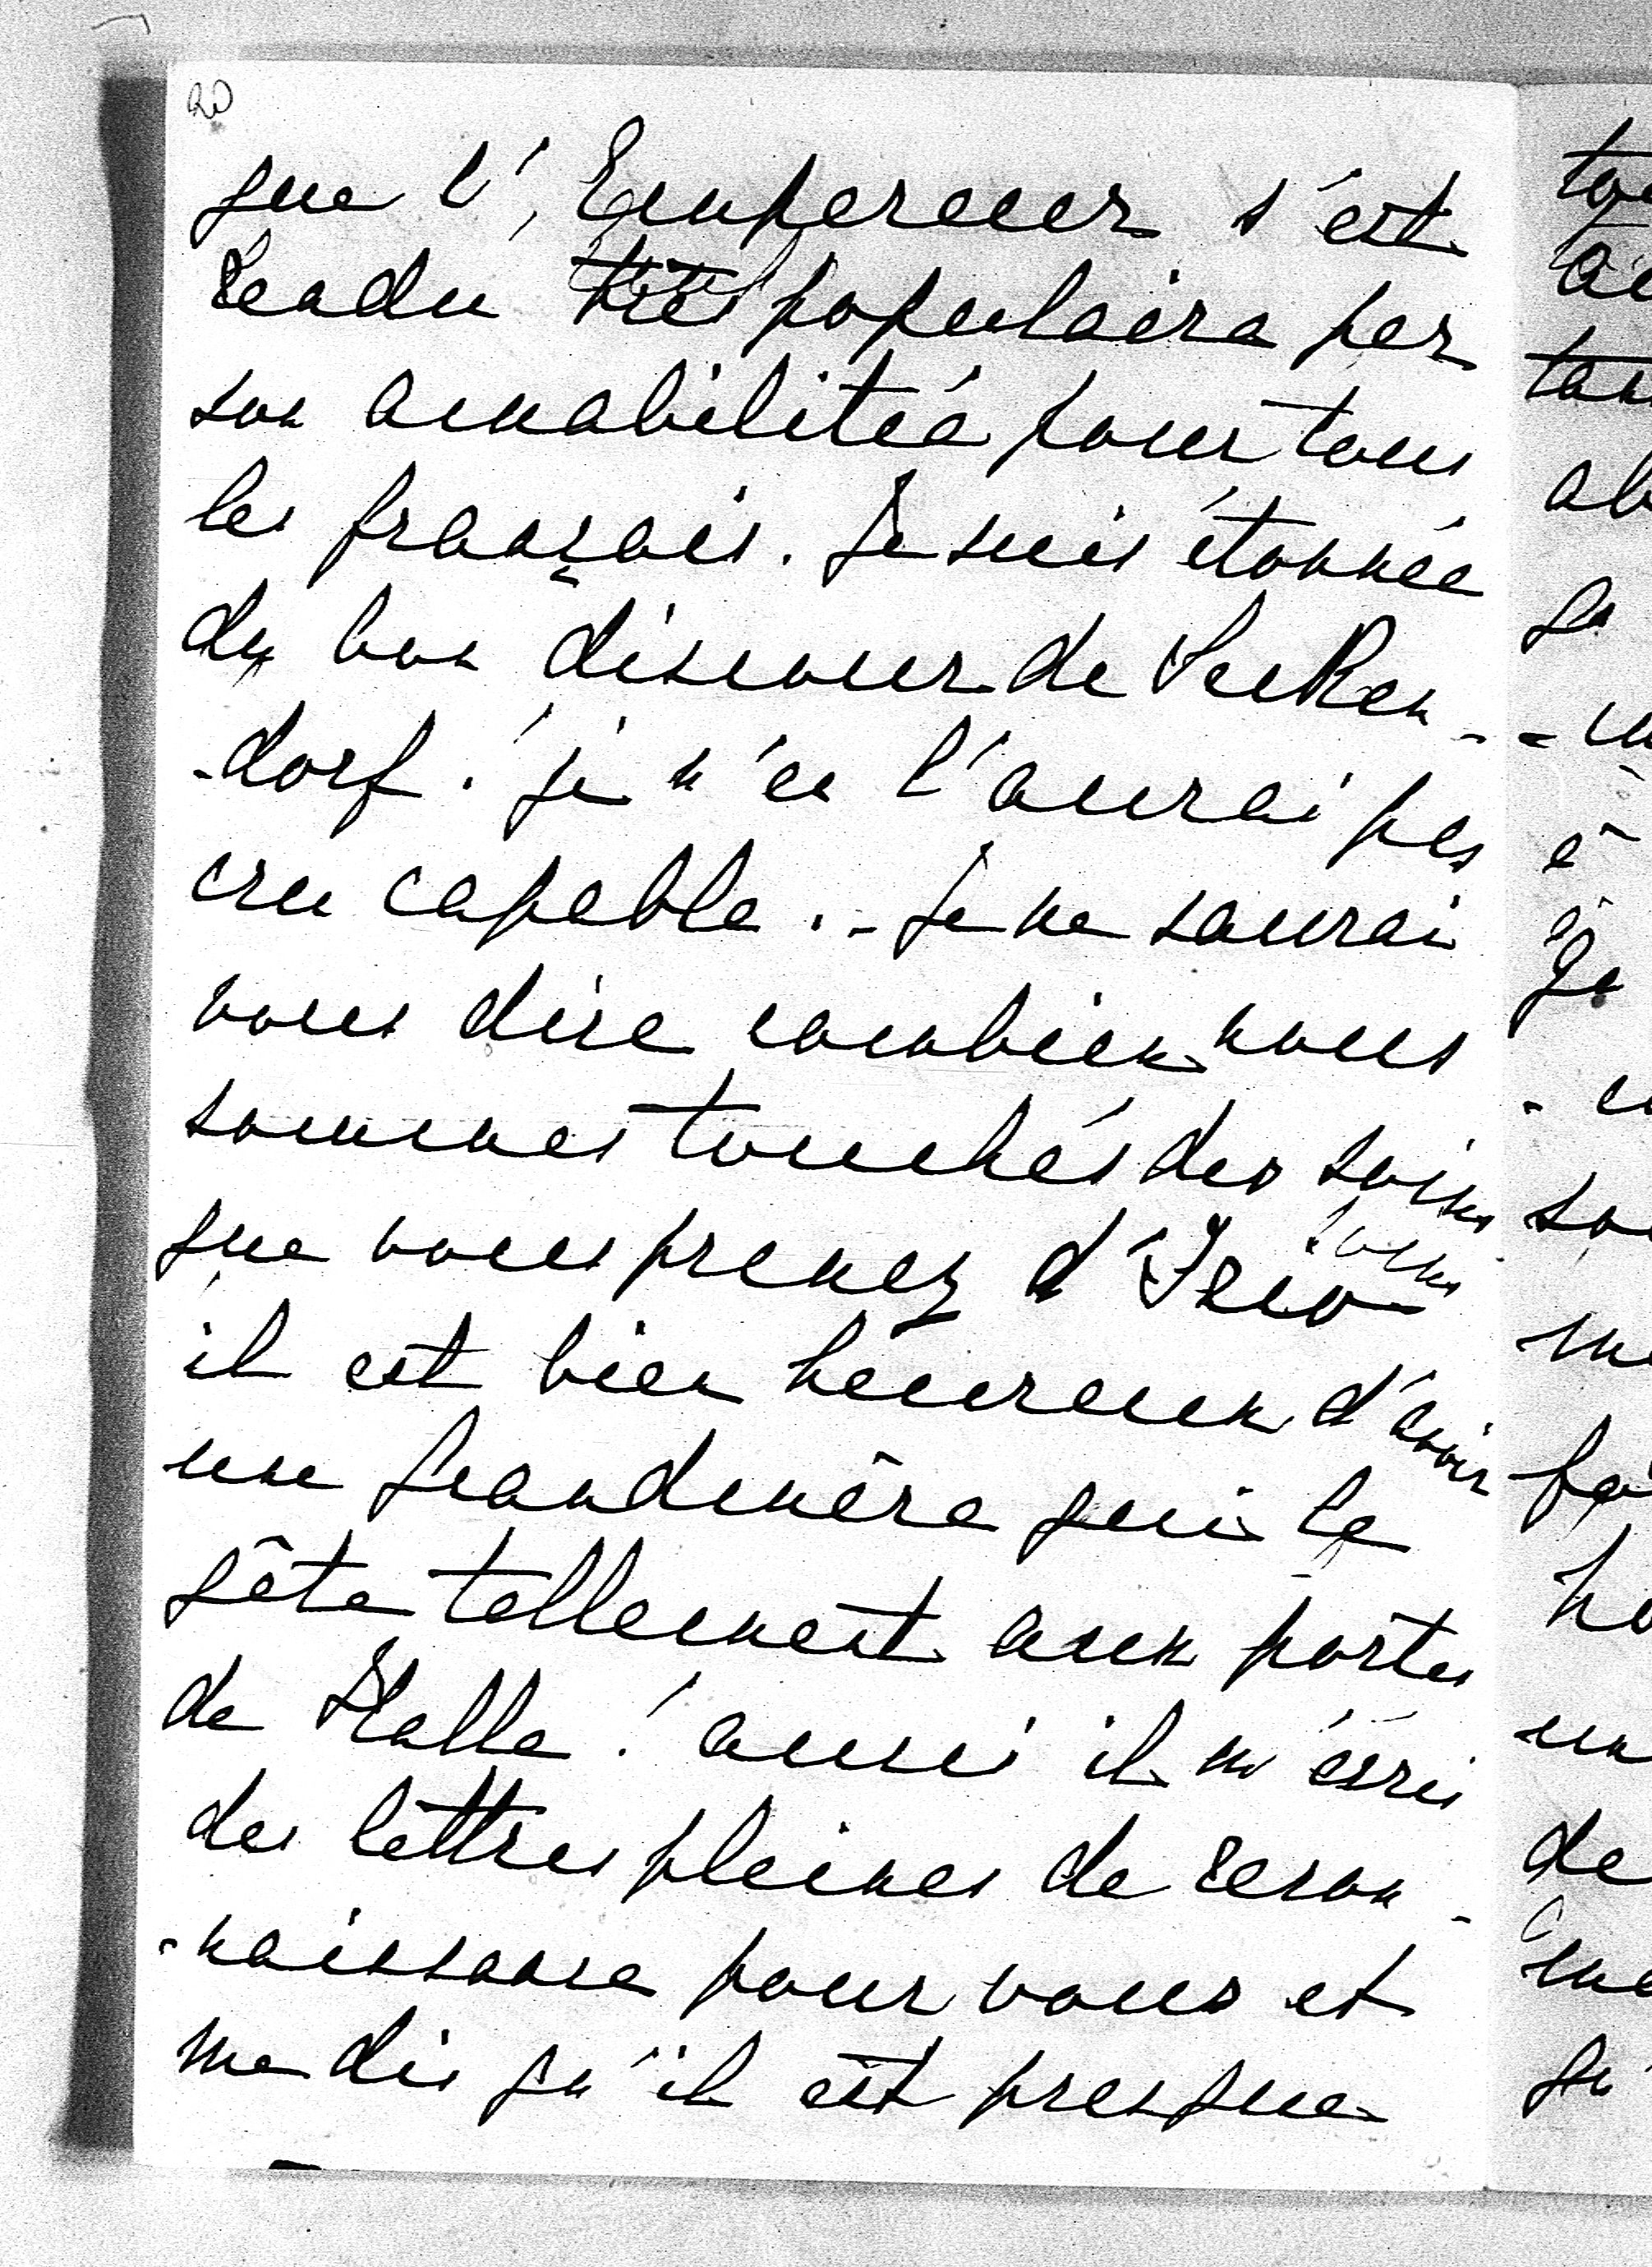 20
que l'Empereur s'est
rendu très populaire par
son amabilitée pour tous
les français. Je suis étonnée
du bon discour de Secken-
-dorf. je n'en l'aurai pas
cru capable. - Je ne saurai
vous dire combien nous
sommes touchés des soins
soins
que vous prenez d'
il est bien heureux d'avoir
une grandmère qui le
gâte tellement aux portes
de Halle! aussi il m'écris
des lettres pleines de recon-
-naissance pour vous et
me dis qu'il est presque